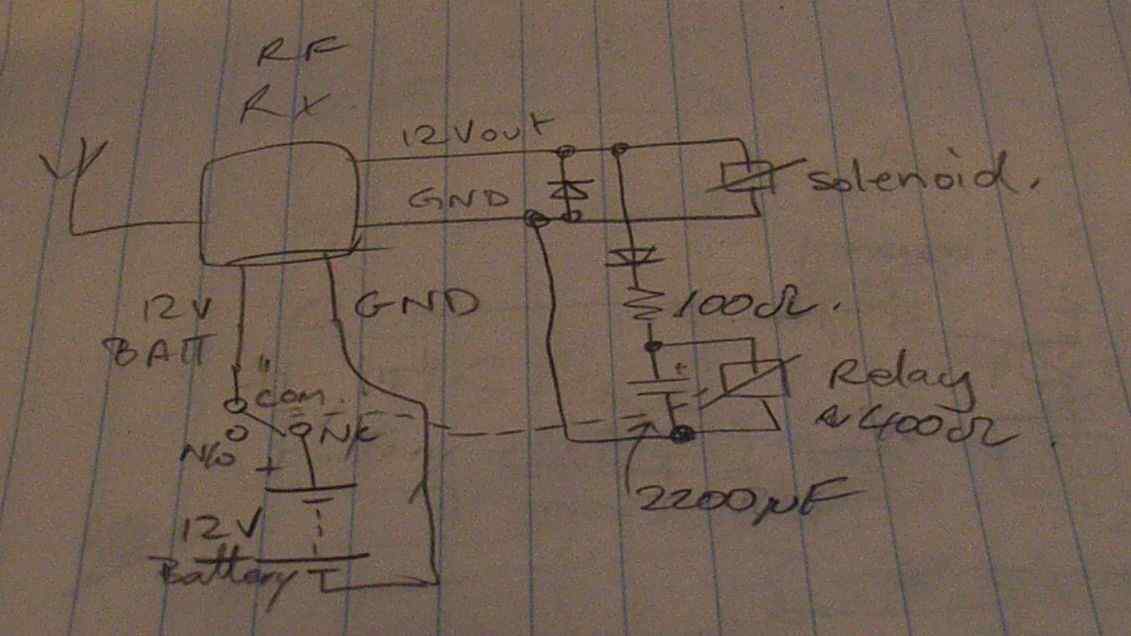 RF
RX
12Vout
GND
solenoid.
12V
BATT
GND
100Ω.
"com.
N/C
N/O
+
+
Relay
≈400Ω
2200µF
12V
Battery